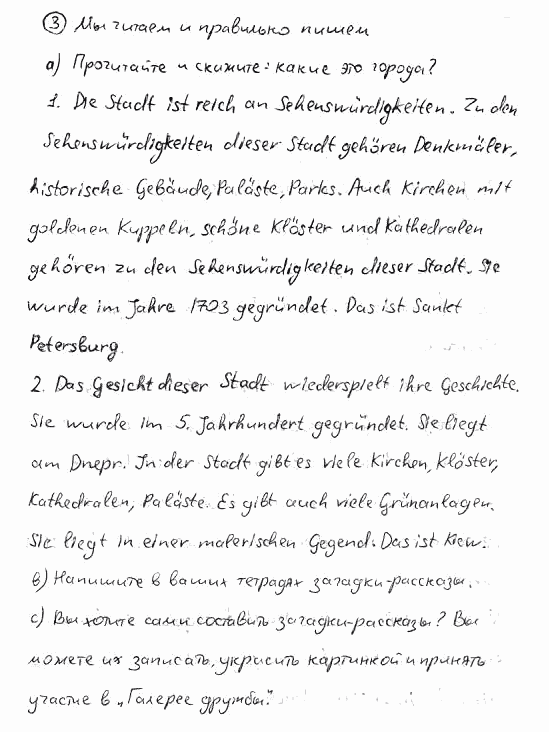 ③ Мы читаем и правильно пишем
а) Прочитайте и скажите: какие это города?
1. Die Stadt ist reich an Sehenswürdigkeiten. Zu den
Sehenswürdigkeiten dieser Stadt gehören Denkmäler,
historische Gebäude, Paläste, Parks. Auch Kirchen mit
goldenen Kuppeln, schöne Klöster und Kathedralen
gehören zu den Sehenswürdigkeiten dieser Stadt. Sie
wurde im Jahre 1703 gegründet. Das ist Sankt
Petersburg.
2. Das Gesicht dieser Stadt wiederspielt ihre Geschichte.
Sie wurde im 5. Jahrhundert gegründet. Sie liegt
am Dnepr. In der Stadt gibt es viele Kirchen, Klöster,
Kathedralen, Paläste. Es gibt auch viele Grünanlagen.
Sie liegt in einer malerischen Gegend. Das ist Kiew.
b) Напишите в ваших тетрадях загадки-рассказы.
c) Вы хотите сами составить загадки-рассказы? Вы
можете их записать, украсить картинкой и принять
участие в „Галерее дружбы".